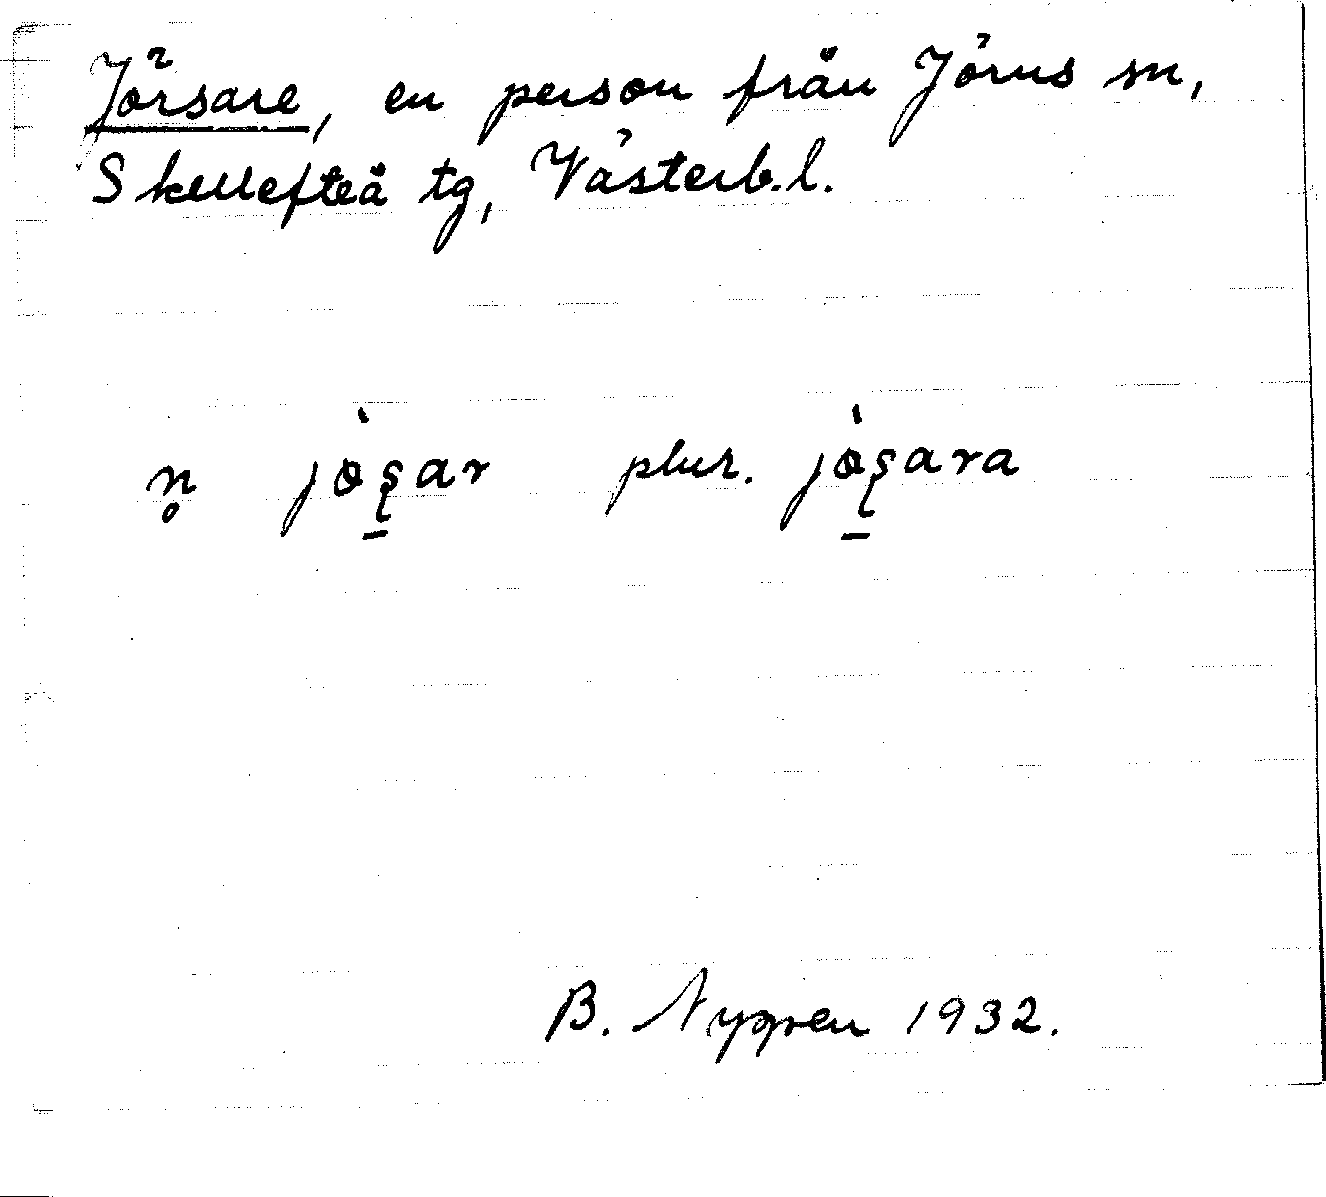 Jörsare, en person från Jörns sn,
Skellefteå tg, Västerb.l.
n̥ jòʂ̠ar plur. jòʂ̠ara
B. Nyppen 1932.